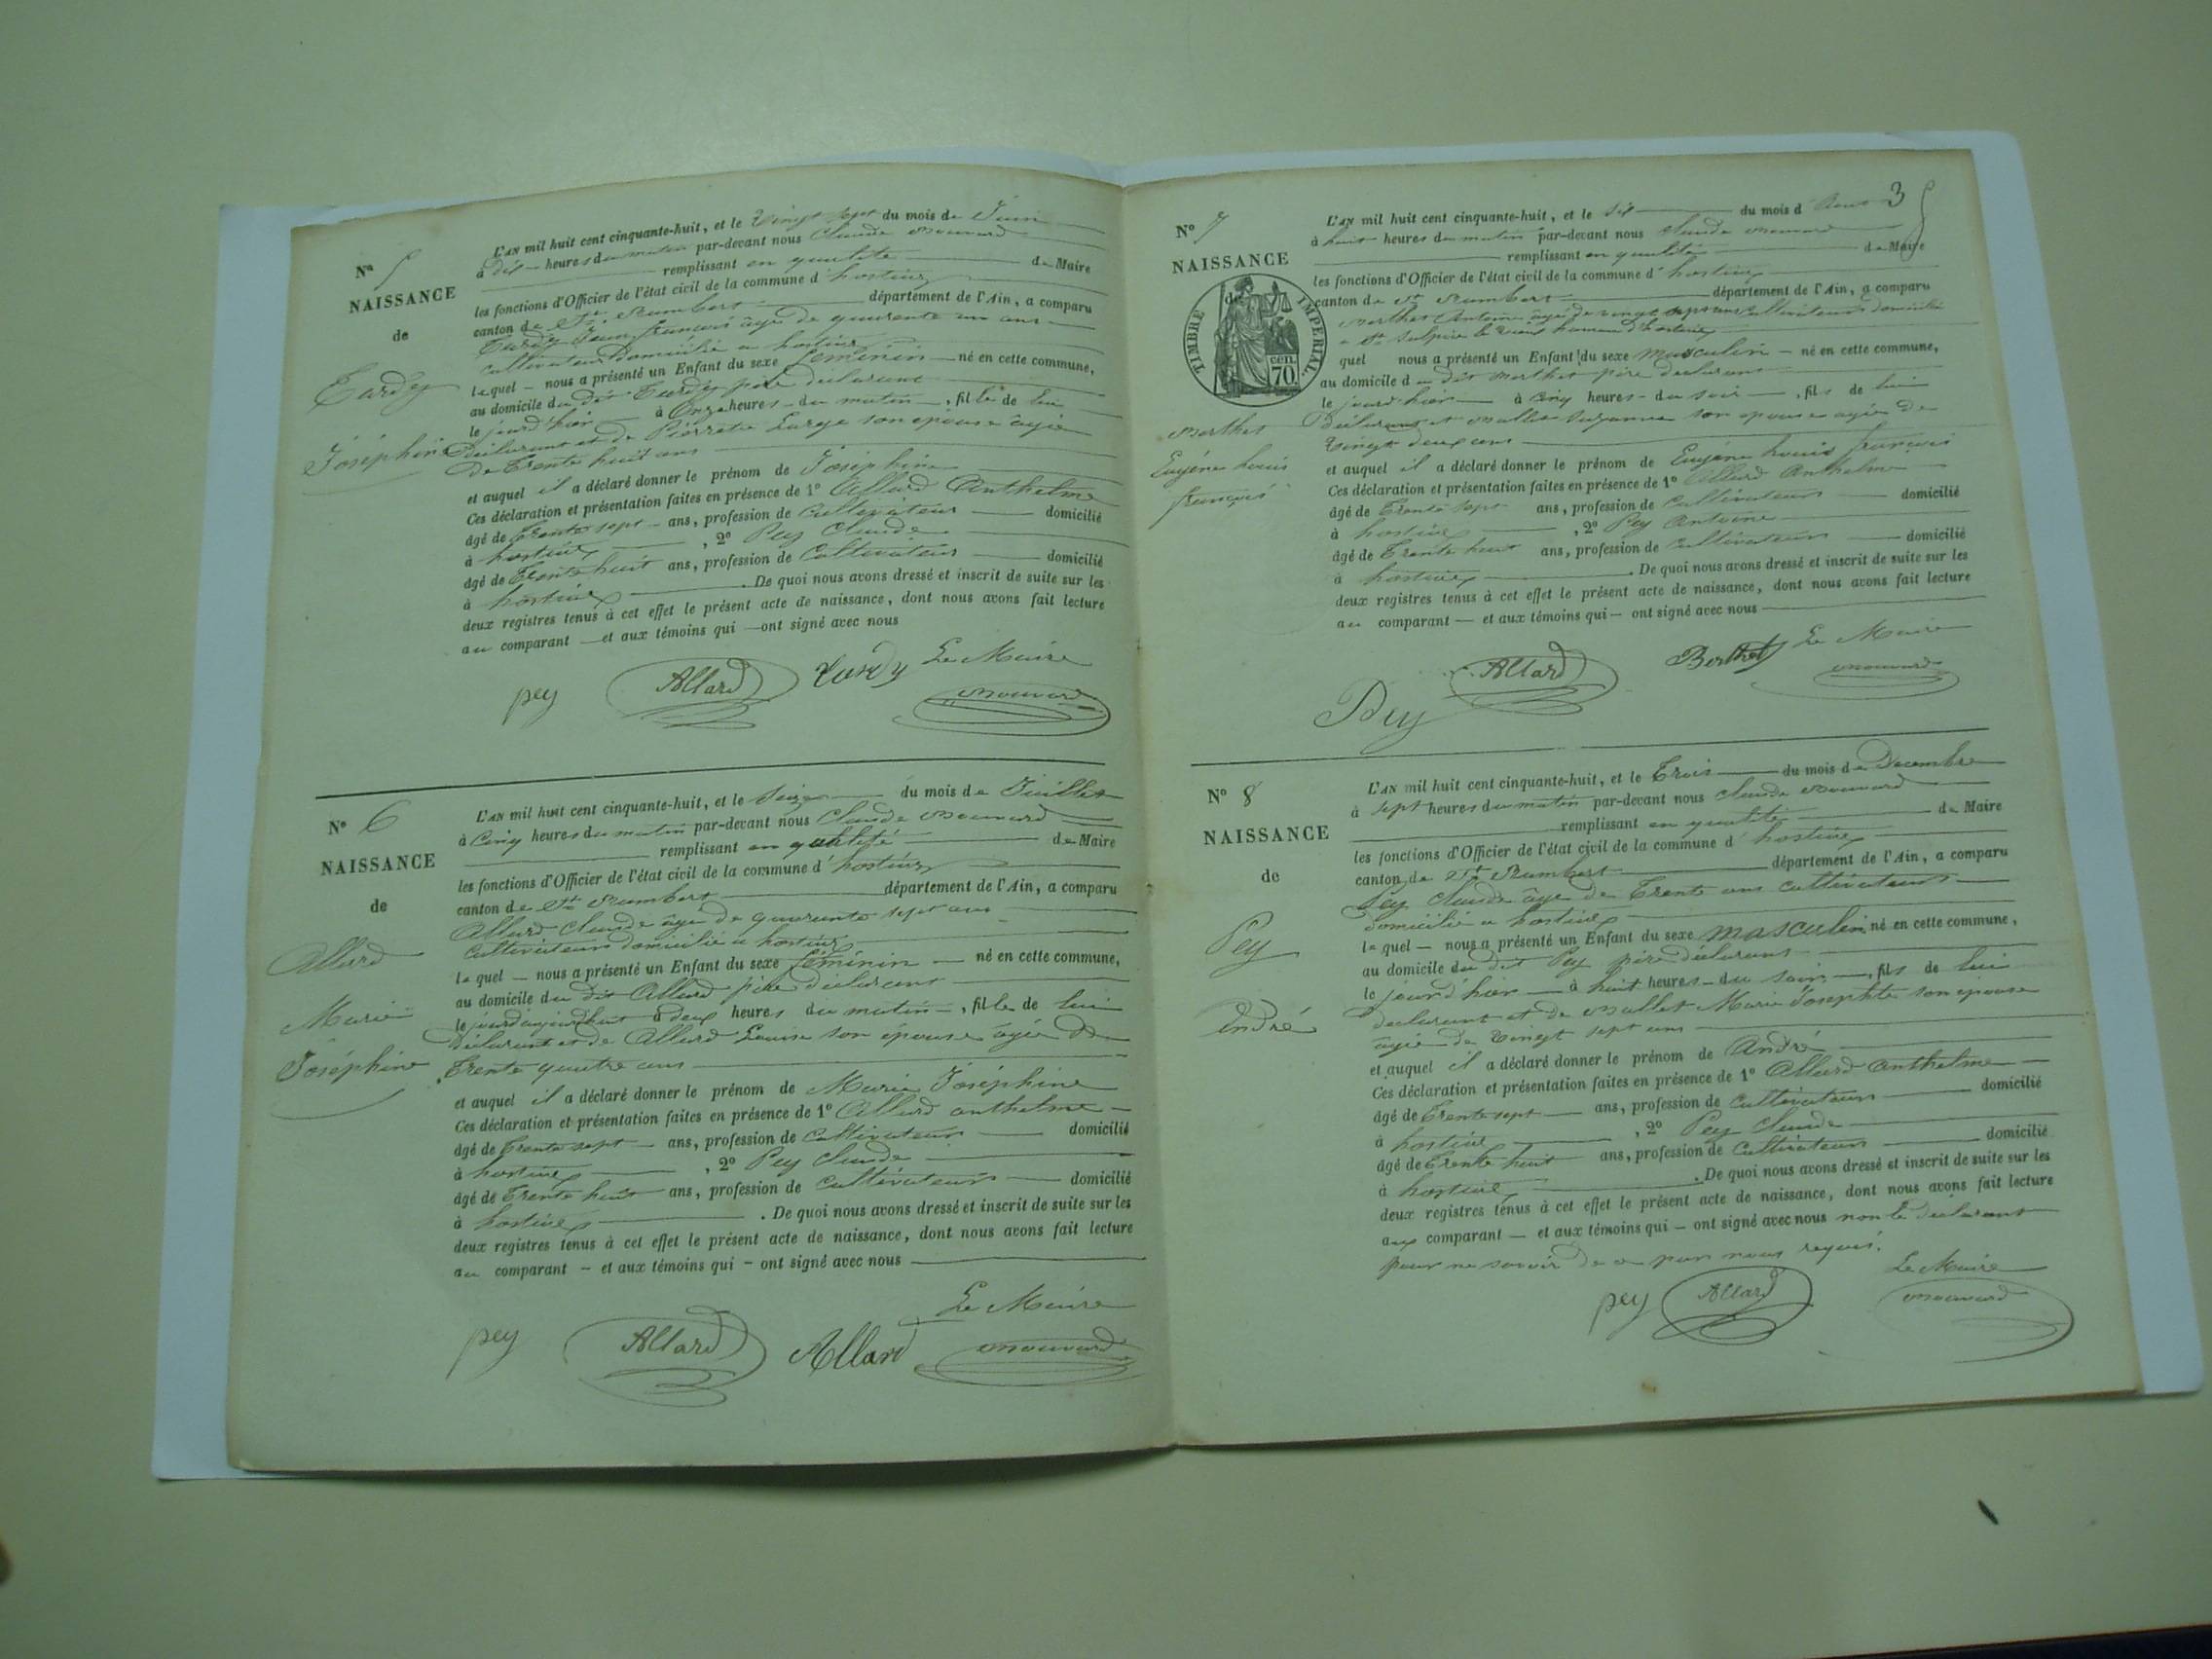 N° 5
NAISSANCE
de
Tardy
Joséphine
L'AN mil huit cent cinquante-huit, et le Vingt sept du mois de Juin
à dix heures du matin par-devant nous Claude
remplissant en qualité de Maire
les fonctions d'Officier de l'état civil de la commune d'hostiaz
canton de St Rambert département de l'Ain, a comparu
Tardy Jean françois âgé de quarante un ans
cultivateur domicilié a hostiaz
lequel nous a présenté un Enfant du sexe féminin né en cette commune,
au domicile du dit Tardy père déclarant
le jour d'hier à Onze heures du matin, fille de lui
Déclarant et de Pierrette son épouse âgée
de trente huit ans
et auquel il a déclaré donner le prénom de Joséphine
Ces déclaration et présentation faites en présence de 1° Allard Anthelme
âgé de trente sept ans, profession de Cultivateur domicilié
à hostiaz, 2° Pey Claude
âgé de Trente huit ans, profession de Cultivateur domicilié
à hostiaz. De quoi nous avons dressé et inscrit de suite sur les
deux registres tenus à cet effet le présent acte de naissance, dont nous avons fait lecture
au comparant et aux témoins qui ont signé avec nous
Le Maire
pey Allard Tardy
N° 6
NAISSANCE
de
Allard
Marie
Joséphine
L'AN mil huit cent cinquante-huit, et le Seize du mois de Juillet
à Cinq heures du matin par-devant nous Claude
remplissant en qualité de Maire
les fonctions d'Officier de l'état civil de la commune d'hostiaz
canton de St Rambert département de l'Ain, a comparu
Allard Claude âgé de quarante sept ans
cultivateur domicilié a hostiaz
lequel nous a présenté un Enfant du sexe féminin né en cette commune,
au domicile du dit Allard père déclarant
le jourd'aujourd'hui à deux heures du matin, fille de lui
Déclarant et de Allard Louise son épouse âgée de
trente quatre ans
et auquel il a déclaré donner le prénom de Marie Joséphine
Ces déclaration et présentation faites en présence de 1° Allard anthelme
âgé de trente sept ans, profession de Cultivateur domicilié
à hostiaz, 2° Pey Claude
âgé de Trente huit ans, profession de Cultivateur domicilié
à hostiaz. De quoi nous avons dressé et inscrit de suite sur les
deux registres tenus à cet effet le présent acte de naissance, dont nous avons fait lecture
au comparant et aux témoins qui ont signé avec nous
Le Maire
pey Allard Allard
3
N° 7
NAISSANCE
de
TIMBRE IMPERIAL
70 cen.
Berthet
Eugéne Louis
françois
L'AN mil huit cent cinquante-huit, et le dix du mois d'Aout
à huit heures du matin par-devant nous Claude
remplissant en qualité de Maire
les fonctions d'Officier de l'état civil de la commune d'hostiaz
canton de St Rambert département de l'Ain, a comparu
Berthet Antoine âgé de vingt sept ans cultivateur domicilié
a St Sulpice le vieux hameau d'hostiaz
quel nous a présenté un Enfant du sexe masculin né en cette commune,
au domicile du dit Berthet père déclarant
le jourd'hier à cinq heures du soir, fils de lui
Déclarant et Mallet Suzanne son épouse agée de
Vingt deux ans
et auquel il a déclaré donner le prénom de Eugéne Louis françois
Ces déclaration et présentation faites en présence de 1° Allard Anthelme
âgé de Trente sept ans, profession de Cultivateur domicilié
à hostiaz, 2° Pey Antoine
âgé de Trente huit ans, profession de Cultivateur domicilié
à hostiaz. De quoi nous avons dressé et inscrit de suite sur les
deux registres tenus à cet effet le présent acte de naissance, dont nous avons fait lecture
au comparant et aux témoins qui ont signé avec nous
Allard Berthet Le Maire
Pey
N° 8
NAISSANCE
de
Pey
André
L'AN mil huit cent cinquante-huit, et le Trois du mois de Decembre
à sept heures du matin par-devant nous Claude
remplissant en qualité de Maire
les fonctions d'Officier de l'état civil de la commune d'hostiaz
canton de St Rambert département de l'Ain, a comparu
Pey Claude âgé de Trente ans cultivateur
domicilié a hostiaz
lequel nous a présenté un Enfant du sexe masculin né en cette commune,
au domicile du dit Pey père déclarant
le jourd'hier à huit heures du soir, fils de lui
declarant et de Mallet Marie Josephte son epouse
agée de vingt sept ans
et auquel il a déclaré donner le prénom de André
Ces déclaration et présentation faites en présence de 1° Allard Anthelme
âgé de Trente sept ans, profession de Cultivateur domicilié
à hostiaz, 2° Pey Claude
âgé de Trente huit ans, profession de Cultivateur domicilié
à hostiaz. De quoi nous avons dressé et inscrit de suite sur les
deux registres tenus à cet effet le présent acte de naissance, dont nous avons fait lecture
aux comparant et aux témoins qui ont signé avec nous non le déclarant
pour ne savoir de ce par nous requis.
Le Maire
pey Allard